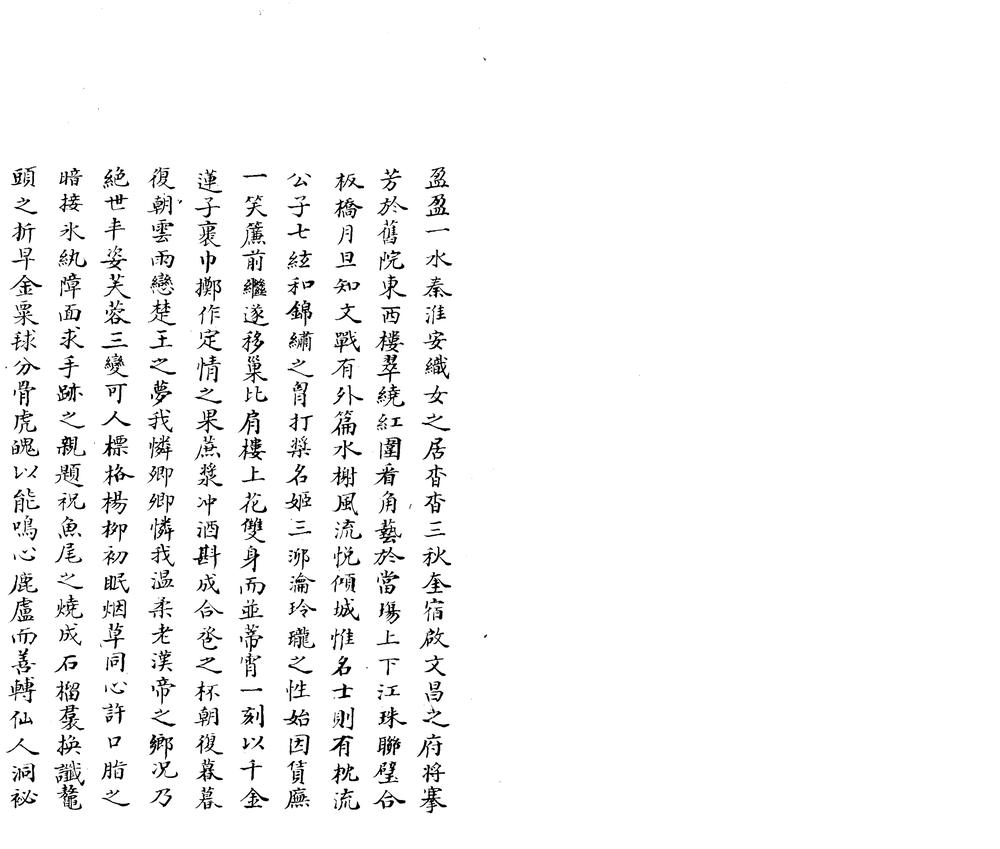 盈盈一水秦淮安織女之居杳杳三秋奎宿啟文昌之府将搴
芳於舊院東西樓翠繞紅圍看角藝於當場上下江珠聯璧合
板橋月旦知文戰有外篇水榭風流悅傾城惟名士則有枕流
公子七絃和錦繡之胷打槳名姬三泖瀹玲瓏之性始因賃廡
一笑簾前繼遂移巢比肩樓上花雙身而並蒂宵一刻以千金
蓮子裹巾擲作定情之果蔗漿冲酒斟成合卺之杯朝復暮暮
復朝雲雨戀楚王之夢我憐卿卿憐我温柔老漢帝之鄉况乃
絶世丰姿芙蓉三變可人標格楊柳初眠烟草同心許口脂之
暗接氷紈障面求手跡之親題祝魚尾之燒成石榴裠換讖鼇
頭之折早金粟毬分骨虎魄以能鳴心鹿盧而善轉仙人洞祕